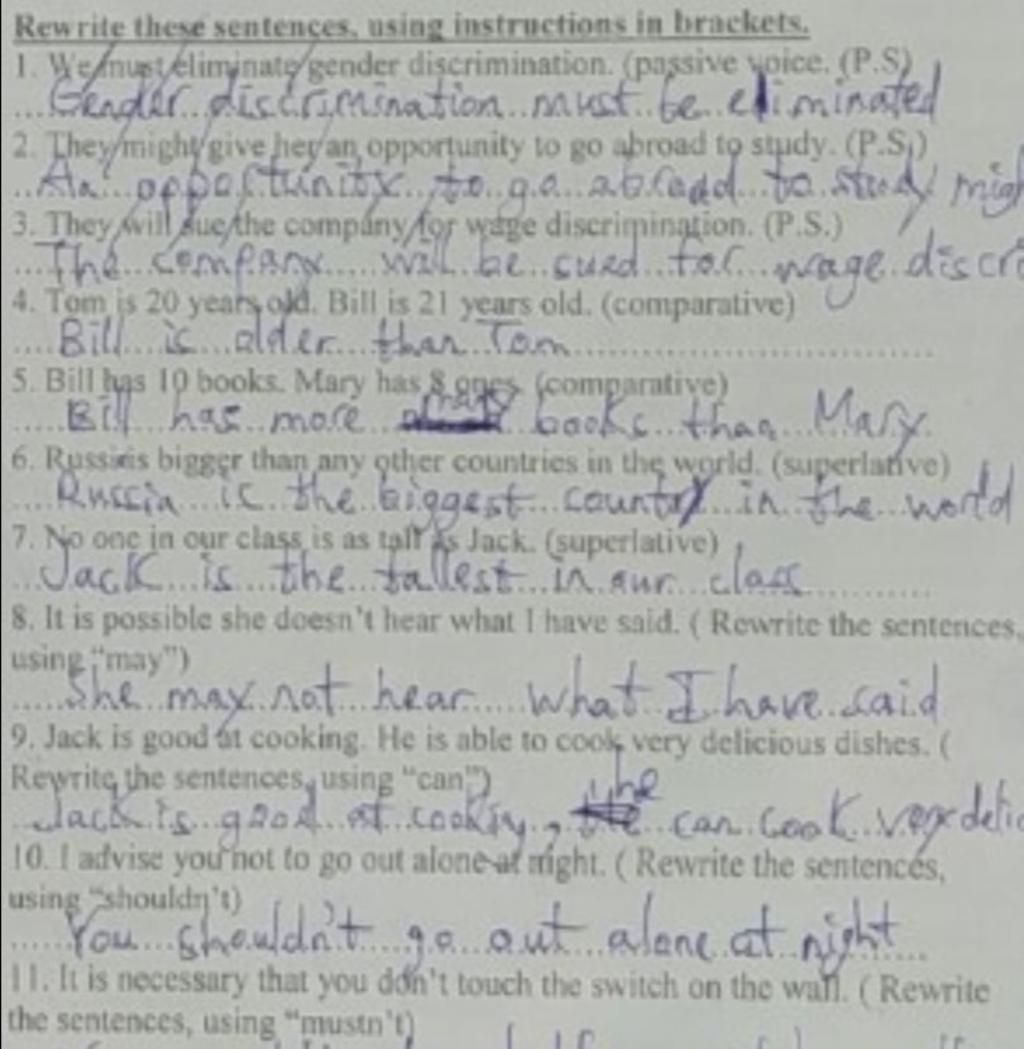 Rewrite these sentences, using instructions in brackets.
1. We must eliminate gender discrimination. (passive voice, (P.S)
....Gender discrimination must be eliminated
2. They might give her an opportunity to go abroad to study. (P.S.)
..An opportunity to go abroad to study migh
3. They will sue the company for wage discrimination. (P.S.)
....The company will be sued for wage discri
4. Tom is 20 years old. Bill is 21 years old. (comparative)
....Bill is older than Tom..............................
5. Bill has 10 books. Mary has 8 ones. (comparative)
.....Bill has more books than Mary
6. Russia is bigger than any other countries in the world. (superlative)
....Russia is the biggest country in the world
7. No one in our class is as tall as Jack. (superlative)
...Jack is the tallest in our class............
8. It is possible she doesn't hear what I have said. ( Rewrite the sentences,
using "may")
......She may not hear what I have said
9. Jack is good at cooking. He is able to cook very delicious dishes. (
Rewrite the sentences, using "can")
..Jack is good at cooking, he can cook very delic
10. I advise you not to go out alone at night. ( Rewrite the sentences,
using "shouldn't)
......You shouldn't go out alone at night....
11. It is necessary that you don't touch the switch on the wall. ( Rewrite
the sentences, using "mustn't)